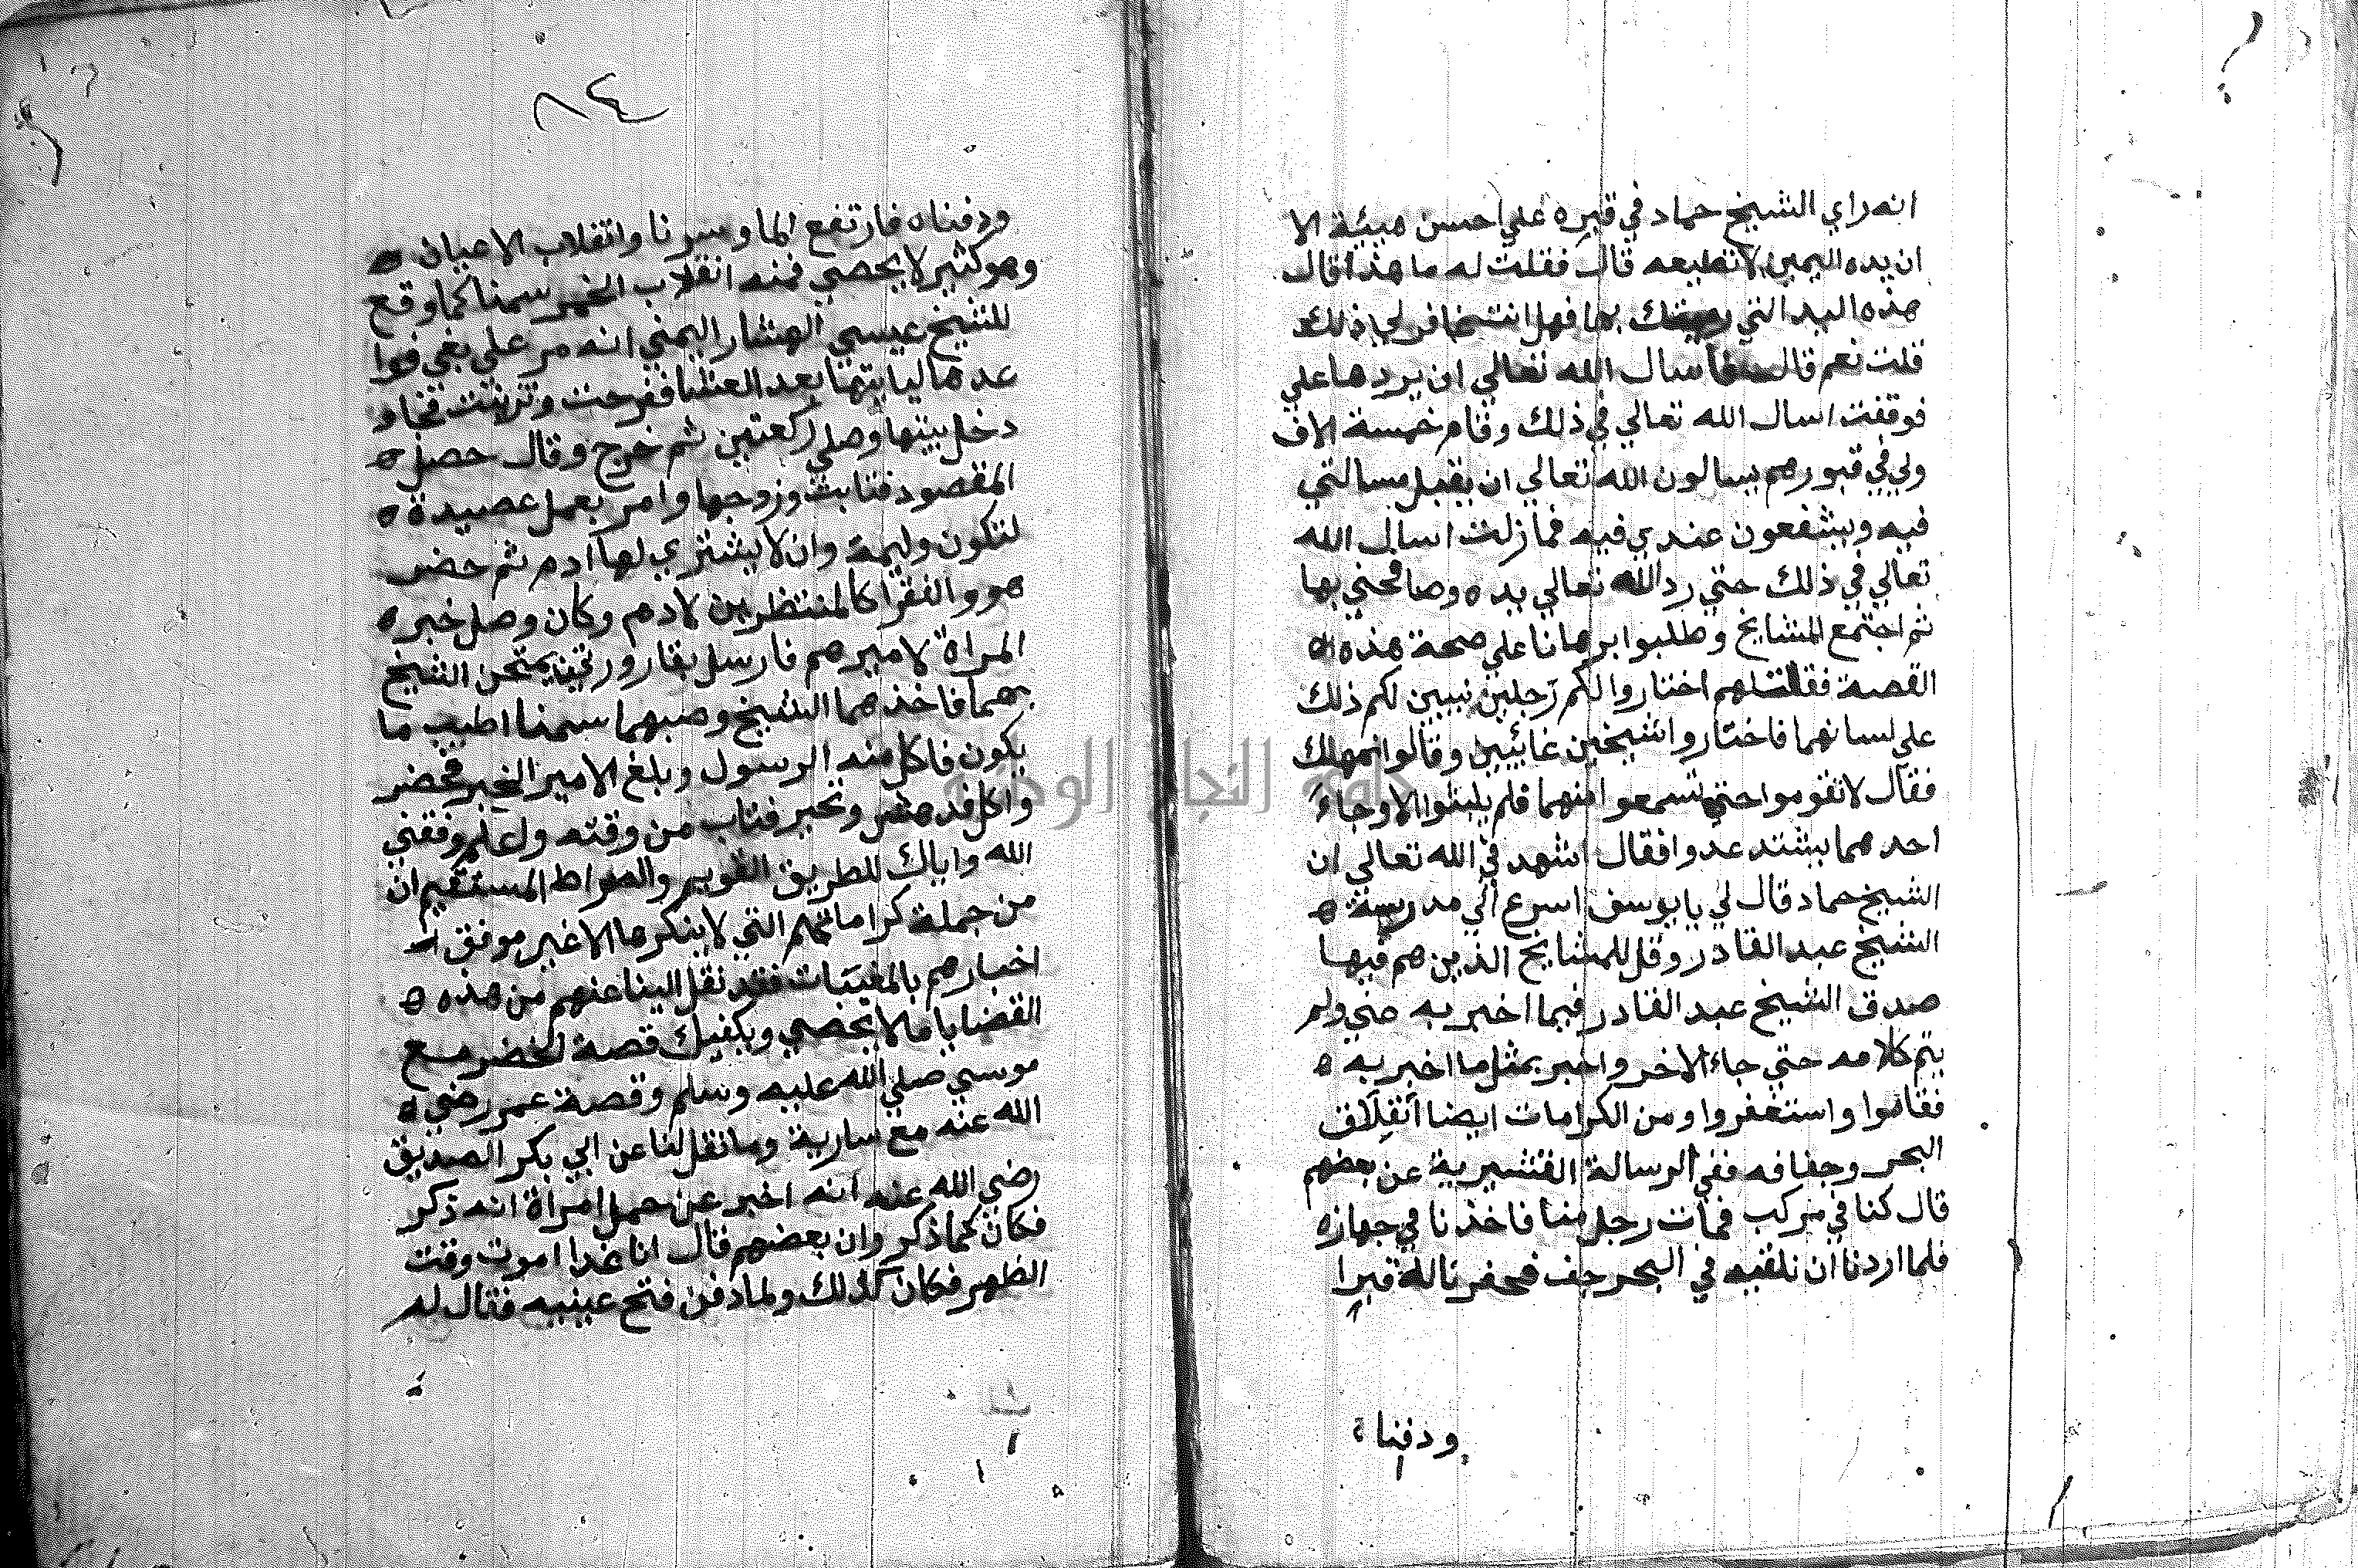 انه راي الشيخ حماد في قبره علي احسن هيئة الا
ان يده اليمين لا تطيعه قال فقلت له ما هذا قال
هذه اليد التي رميتك بها فهل انت غافر لي ذلك
قلت نعم قال فاسال الله تعالي ان يردها علي
فوقفت اسال الله تعالي في ذلك وقام خمسة الاف
ولي في قبورهم يسالون الله تعالي ان يقبل مسالتي
فيه ويشفعون عندي فيه فما زلت اسال الله
تعالي في ذلك حتي رد الله تعالي يده وصافحني بها
ثم اجتمع المشايخ وطلبوا برهانا علي صحة هذه
القصة فقلت لهم اختاروا لكم رجلين نبيين لكم ذلك
علي لسانهما فاختاروا شيخين غائبين وقالوا نمهلك
فقال لا تقوموا حتي تسمعوا منهما فلم يلبثوا الا وجاء
احدهما يشتد عدوا فقال اشهدني الله تعالي ان
الشيخ حماد قال لي يا يوسف اسرع الي مدرسة
الشيخ عبد القادر وقل للمشايخ الذين هم فيها
صدق الشيخ عبد القادر فيما اخبر به عني ولم
يتم كلامه حتي جاء الاخر واخبر بمثل ما اخبر به
فقاموا واستغفروا ومن الكرامات ايضا انفلاق
البحر وجفافه ففي الرسالة القشيرية عن بعضهم
قال كنا في مركب فمات رجل منا فاخذنا في جهازه
فلما اردنا ان نلقيه في البحر جف فحفرنا له قبرا
ودفناه
٨٤
ودفناه فارتفع الما وسرنا وانقلاب الاعيان
وهو كثير لا يحصي فمنه انقلاب الخمر سمنا كما وقع
للشيخ عيسي الهتار اليمني انه مر علي بغي فوا
عدها ليا بيتها بعد العشا ففرحت وتزينت فجاء
دخل بيتها وصلي ركعتين ثم خرج وقال حصل
المقصود فتابت وزوجها وامر بعمل عصيدة
لتكون وليمة وان لا يشتري لها ادم ثم حضر
هو والفقرا كالمنتظرين لادم وكان وصل خبر
المراة لاميرهم فارسل بقارورتين يمتحن الشيخ
بهما فاخذهما الشيخ وصبهما سمنا اطيب ما
يكون فاكل منه الرسول وبلغ الامير الخبر فحضر
واكل فدهش وتحير فتاب من وقته واعلم وفقني
الله واياك للطريق القويم والصراط المستقيم ان
من جملة كراماتهم التي لا ينكرها الا غير موفق
اخبارهم بالمغيبات فقد نقل الينا عنهم من هذه
القضايا ما لا يحصي ويكفيك قصة الخضر مع
موسي صلي الله عليه وسلم وقصة عمر رضي
الله عنه مع سارية وما نقل لنا عن ابي بكر الصديق
رضي الله عنه انه اخبر عن حمل امراة انه ذكر
فكان كما ذكر وان بعضهم قال انا غدا اموت وقت
الظهر فكان كذلك ولما دفن فتح عينيه فقال له